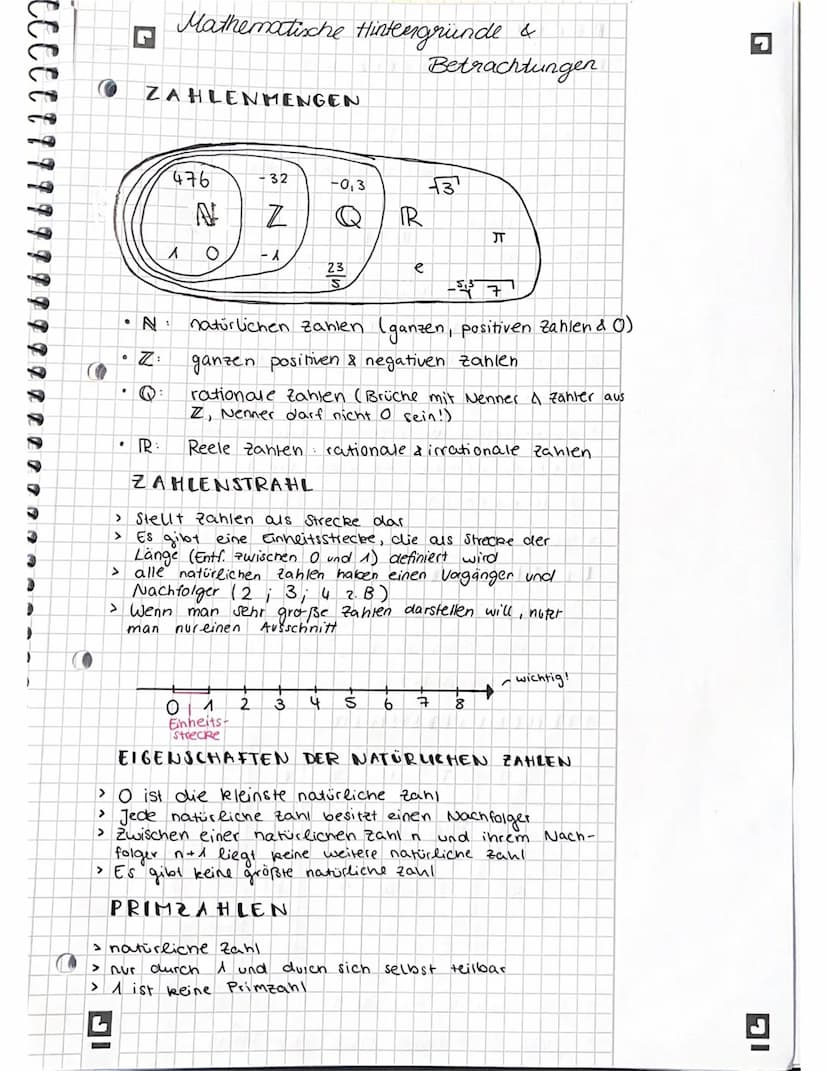 Mathematische Hintergründe &
Betrachtungen
ZAHLENMENGEN
476 -32 -0,3 √3
ℕ ℤ ℚ ℝ
π
1 0 -1 23/5 e
7
• ℕ: natürlichen Zahlen (ganzen, positiven Zahlen & 0)
• ℤ: ganzen positiven & negativen Zahlen
• ℚ: rationale Zahlen (Brüche mit Nenner & Zähler aus
ℤ, Nenner darf nicht 0 sein!)
• ℝ: Reele Zahlen: rationale & irrationale Zahlen
ZAHLENSTRAHL
> Stellt Zahlen als Strecke das
> Es gibt eine Einheitsstrecke, die als Strecke der
Länge (Entf. zwischen 0 und 1) definiert wird
> alle natürlichen Zahlen haben einen Vorgänger und
Nachfolger (2 ; 3 ; 4 z.B)
> Wenn man sehr große Zahlen darstellen will, nutzt
man nur einen Ausschnitt
wichtig!
0 1 2 3 4 5 6 7 8
Einheits-
strecke
EIGENSCHAFTEN DER NATÜRLICHEN ZAHLEN
> 0 ist die kleinste natürliche Zahl
> Jede natürliche Zahl besitzt einen Nachfolger
> Zwischen einer natürlichen Zahl n und ihrem Nach-
folger n+1 liegt keine weitere natürliche Zahl
> Es gibt keine größte natürliche Zahl
PRIMZAHLEN
> natürliche Zahl
> nur durch 1 und durch sich selbst teilbar
> 1 ist keine Primzahl